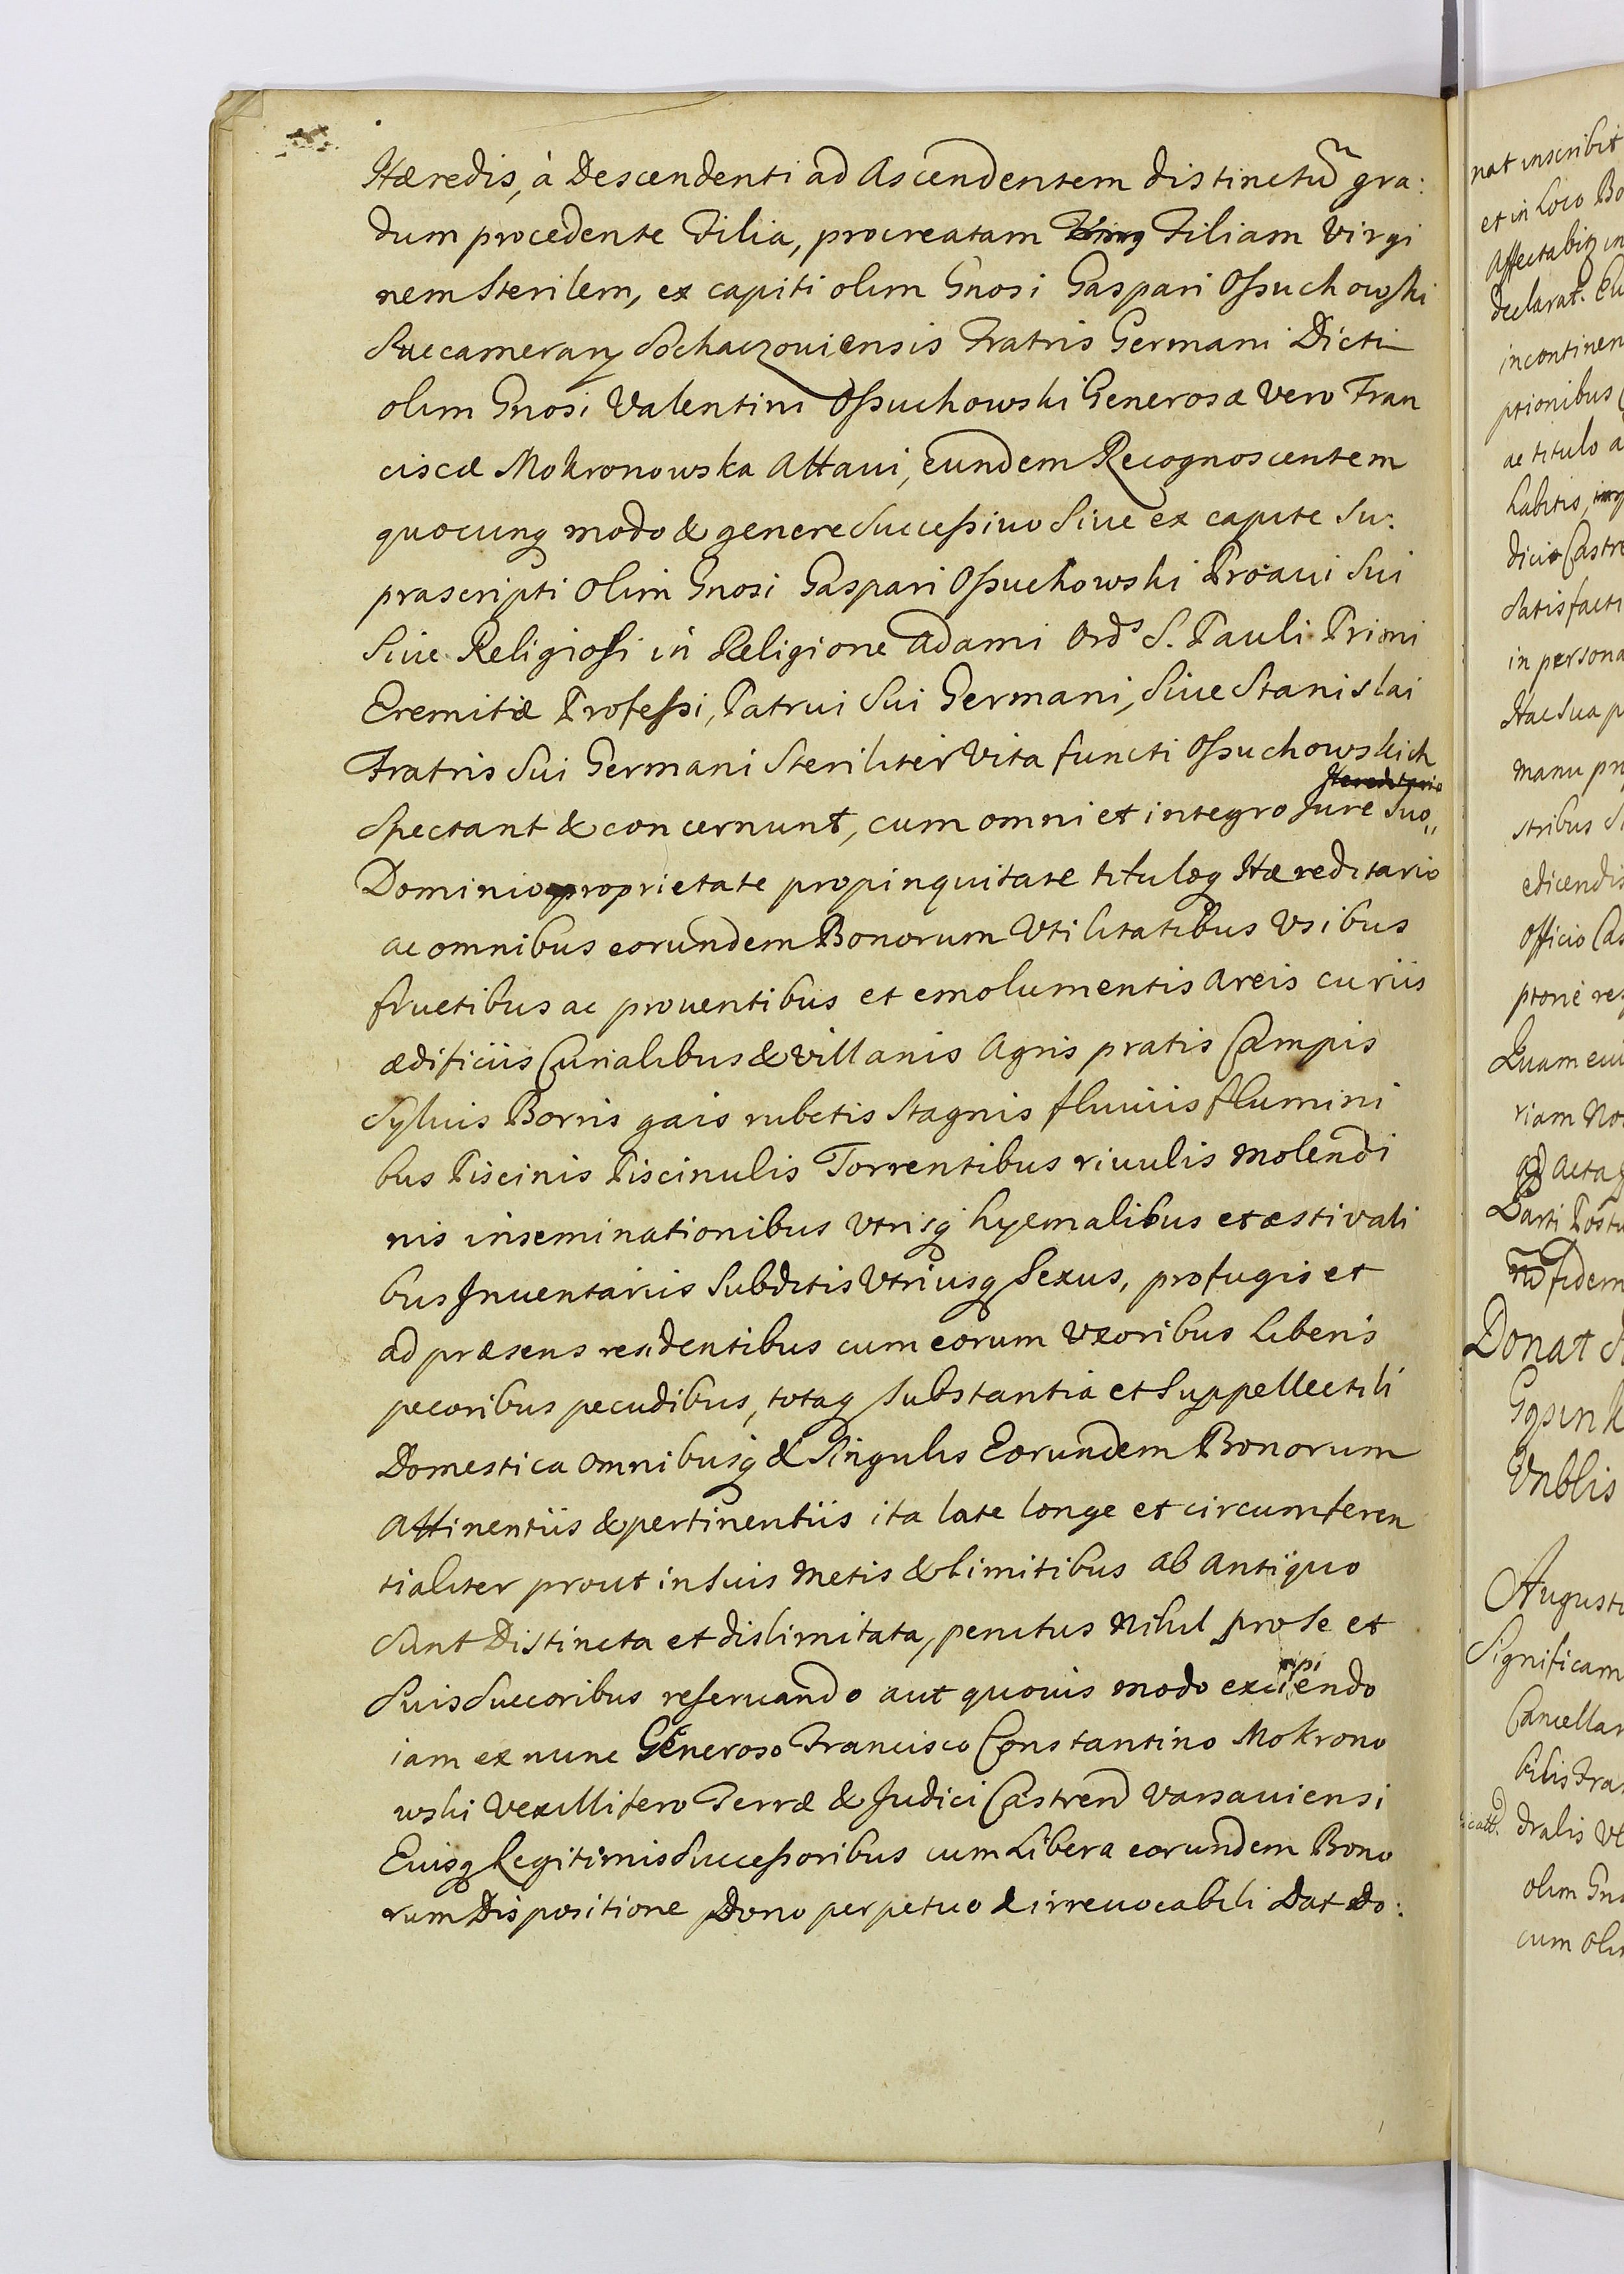 Hæredis, à Descendenti ad Ascendentem distinctũ gra:
dum procedente Filia, procreatam Filiam Virgi
nem Sterilem, ex capiti olim Gnosi Gaspari Ossuchowski
Succamerarij Sochaczouiensis Fratris Germani Dicti
olim Gnosi Valentini Ossuchowski Generosæ vero Fran
ciscæ Mokronowska Attaui, eundem Recognoscentem
quocunq modo & genere Successiuo Siue ex capite Su:
prascripti olim Gnosi Gaspari Ossuchowski Proaui Sui
Siue Religiossi in Religione Adami Ords S. Pauli Primi
Eremitæ Professi, Patrui Sui Germani, Siue Stanislai
Fratris Sui Germani Steriliter Vita functi Ossuchowskich
Hereditario
Spectant & concernunt, cum omni et integro Jure Suo,,
Dominio proprietate propinquitate tituloq Hæreditario
ac omnibus eorundem Bonorum Vtilitatibus Vsibus
fructibus ac prouentibus et emolumentis areis curiis
ædificiis Curialibus & Villanis Agris pratis Campis
Syluis Borris gais rubetis stagnis fluuiis flumini
bus Piscinis Piscinulis Torrentibus riuulis molendi
nis inseminationibus Vtrisq hyemalibus et æstivali
bus Inuentariis Subditis Vtriusq Sexus, profugis et
ad præsens residentibus cum eorum Vxoribus Liberis
pecoribus pecudibus, totaq Substantia et Suppellectili
Domestica omnibusq & Singulis Eorundem Bonorum
Attinentiis & pertinentiis ita late longe et circumferen
tialiter prout in Suis Metis & limitibus ab antiquo
Sunt Distincta et dislimitata, penitus Nihil pro Se et
Suis Succoribus reseruando aut quouis modo exciipiendo
iam ex nunc Generoso Francisco Constantino Mokrono
wski Vexillifero Terræ & Judici Castren Varsauiensi
Euisq Legitimis Successoribus cum Libera eorundem Bono
rum Dispositione Dono perpetuo & irreuocabili Dat Do:
nat inscribit
et in Loco Bo
Affectabit in
declarat.
incontinen
ptionibus
ac titulo a
habitis,
dicio Castre
Satisfacti
in persona
Hac Sua p
manu pro
stribus
edicendis
Officio Cas
ptione res
Quam
riam Nos
ad Acta
Parti Postu
fidem
Donat
Gosink
Vnblis
Augustu
Significam
Cancellar
bilis Fra
dralis
olim Gno
cum olim